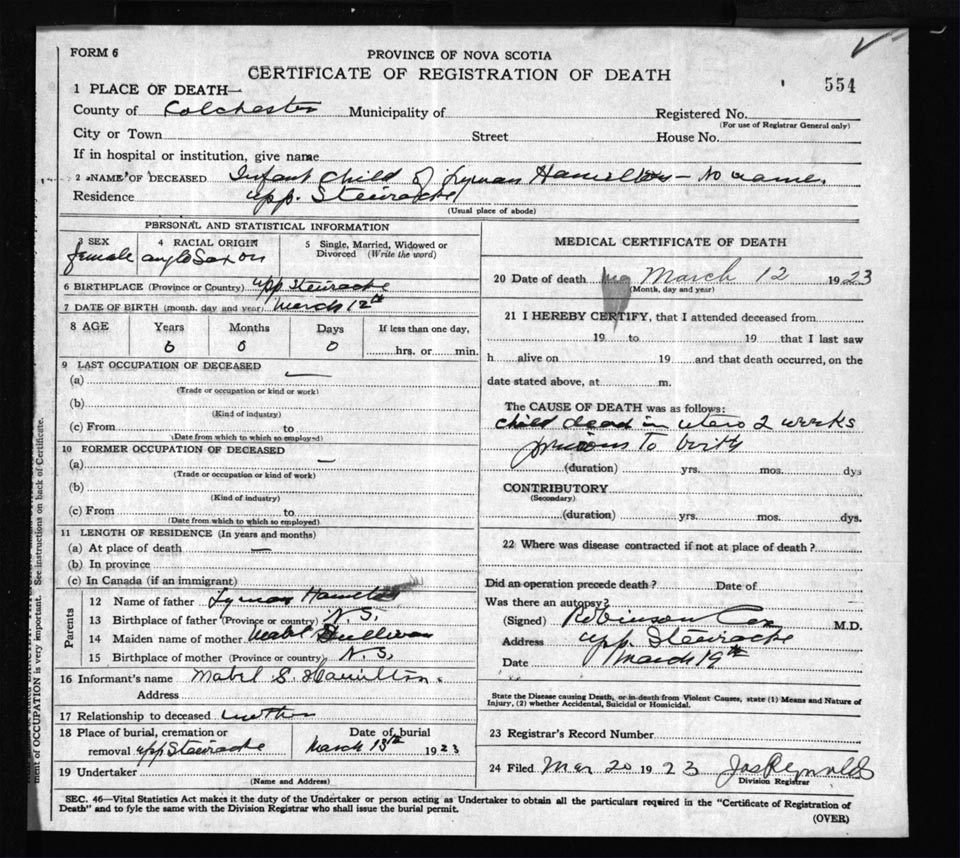 FORM 6
PROVINCE OF NOVA SCOTIA
CERTIFICATE OF REGISTRATION OF DEATH
554
1 PLACE OF DEATH—
County of Colchester Municipality of Registered No.
(For use of Registrar General only)
City or Town Street House No.
If in hospital or institution, give name
2 NAME OF DECEASED Infant child of Lyman Hamilton — no name.
Residence Upp. Stewiacke
(Usual place of abode)
PERSONAL AND STATISTICAL INFORMATION
3 SEX female
4 RACIAL ORIGIN anglo Saxon
5 Single, Married, Widowed or Divorced (Write the word)
6 BIRTHPLACE (Province or Country) Upp Stewiacke
7 DATE OF BIRTH (month, day and year) March 12th
8 AGE Years Months Days If less than one day,
0 0 0 hrs. or min.
9 LAST OCCUPATION OF DECEASED
(a) —
(Trade or occupation or kind or work)
(b)
(Kind of industry)
(c) From to
(Date from which to which so employed)
10 FORMER OCCUPATION OF DECEASED
(a) —
(Trade or occupation or kind of work)
(b)
(Kind of industry)
(c) From to
(Date from which to which so employed)
11 LENGTH OF RESIDENCE (In years and months)
(a) At place of death —
(b) In province
(c) In Canada (if an immigrant)
Parents
12 Name of father Lyman Hamilton
13 Birthplace of father (Province or country) N. S.
14 Maiden name of mother Mabel Sullivan
15 Birthplace of mother (Province or country) N. S.
16 Informant's name Mabel S. Hamilton.
Address
17 Relationship to deceased mother
18 Place of burial, cremation or Date of burial
removal Upp Stewiacke March 13th 1923
19 Undertaker
(Name and Address)
MEDICAL CERTIFICATE OF DEATH
20 Date of death March 12 1923
(Month, day and year)
21 I HEREBY CERTIFY, that I attended deceased from
19 to 19 that I last saw
h alive on 19 and that death occurred, on the
date stated above, at m.
The CAUSE OF DEATH was as follows:
child dead in utero 2 weeks
previous to birth
(duration) yrs. mos. dys
CONTRIBUTORY
(Secondary)
(duration) yrs. mos. dys.
22 Where was disease contracted if not at place of death?
Did an operation precede death? Date of
Was there an autopsy?
(Signed) Robinson Cox M.D.
Address Upp. Stewiacke
Date March 19th
State the Disease causing Death, or in death from Violent Causes, state (1) Means and Nature of
Injury, (2) whether Accidental, Suicidal or Homicidal.
23 Registrar's Record Number
24 Filed Mar 20 1923 Jas Reynolds
Division Registrar
SEC. 46—Vital Statistics Act makes it the duty of the Undertaker or person acting as Undertaker to obtain all the particulars required in the "Certificate of Registration of
Death" and to fyle the same with the Division Registrar who shall issue the burial permit.
(OVER)
ment of OCCUPATION is very important. See instructions on back of Certificate.